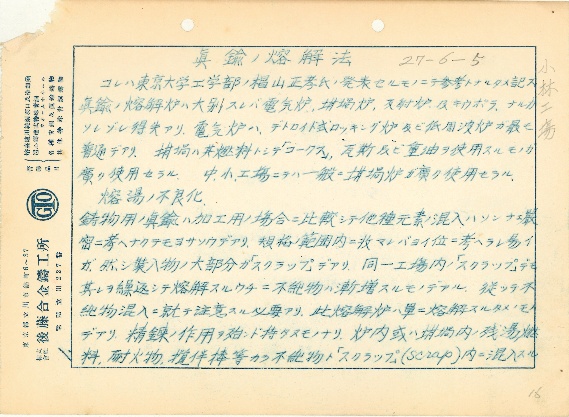 真鍮ノ熔解法
27-6-5
小林工場
コレハ東京大学工学部ノ椙山正孝氏ノ発表セルモノニテ参考トノルタメ記ス
真鍮ノ熔解炉ハ大別スレバ電気炉、坩堝炉、反射炉、及キウポラ、ナルガ
ソレゾレ得失アリ、電気炉ハ、デトロイド式ロッキング炉及ビ低周波炉ガ最モ
普通デアリ、坩堝ハ燃料トシテ「コークス」、瓦斯及ビ重油ヲ使用スルモノガ
廣ク使用セラル。中小工場ニテハ一般ニ坩堝炉ガ廣ク使用セラル。
熔湯ノ不良化.
鋳物用ノ真鍮ハ加工用ノ場合ニ比較シテ他種元素ノ混入ハソンナニ厳
密ニ考ヘナクテモヨサソウデアリ、規格ノ範囲内ニ收マレバヨイ位ニ考ヘラレ易イ
ガ、然シ装入物ノ大部分ガ「スクラップ」デアリ、同一工場内ノ「スクラップ」デモ
其レヲ繰返シテ熔解スルウチニ不純物ハ漸増スルモノデアル。従ツテ不
純物混入ニ就テ注意スル必要アリ、此熔解炉ハ単ニ熔解スルタメノモノ
デアリ、精錬ノ作用ヲ殆ンド持タズモノナリ、炉内或ハ坩堝内ノ残湯燃
料、耐火物、攪伴棒等カラ不純物ト「スクラップ」(scrap)内ニ混入スル
株式会社 後藤合金鑄工所
東京都立川市錦町6-27
電話立川287番
16